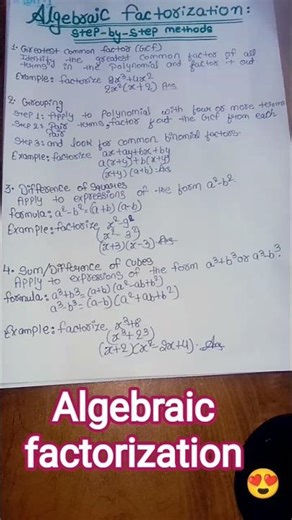 Algebraic factorization:
step-by-step methods
1. Greatest common factor (GCF)
Identify the greatest common factor of all
terms in the Polynomial and factor it out
Example: factorize 8x³+4x²
2x²(x+2) Ans
2. Grouping
Step 1: Apply to Polynomial with four or more terms
Step 2: Pair terms, factor out the GCF from each
Pair
Step 3: and look for common binomial factors.
Example: factorize ax+ay+bx+by
a(x+y)+b(x+y)
(x+y)(a+b) Ans
3. Difference of Squares
Apply to expressions of the form a²-b²
formula: a²-b²=(a+b)(a-b)
Example: factorize, x²-9
x²-3²
(x+3)(x-3) Ans
4. Sum/Difference of Cubes
Apply to expressions of the form a³+b³ or a³-b³
formula: a³+b³=(a+b)(a²-ab+b²)
a³-b³=(a-b)(a²+ab+b²)
Example: factorize, x³+8
(x³+2³)
(x+2)(x²-2x+4). Ans
Algebraic
factorization